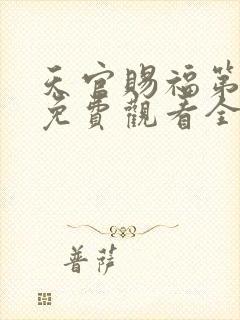 天官賜福第
免費觀看全
普薩